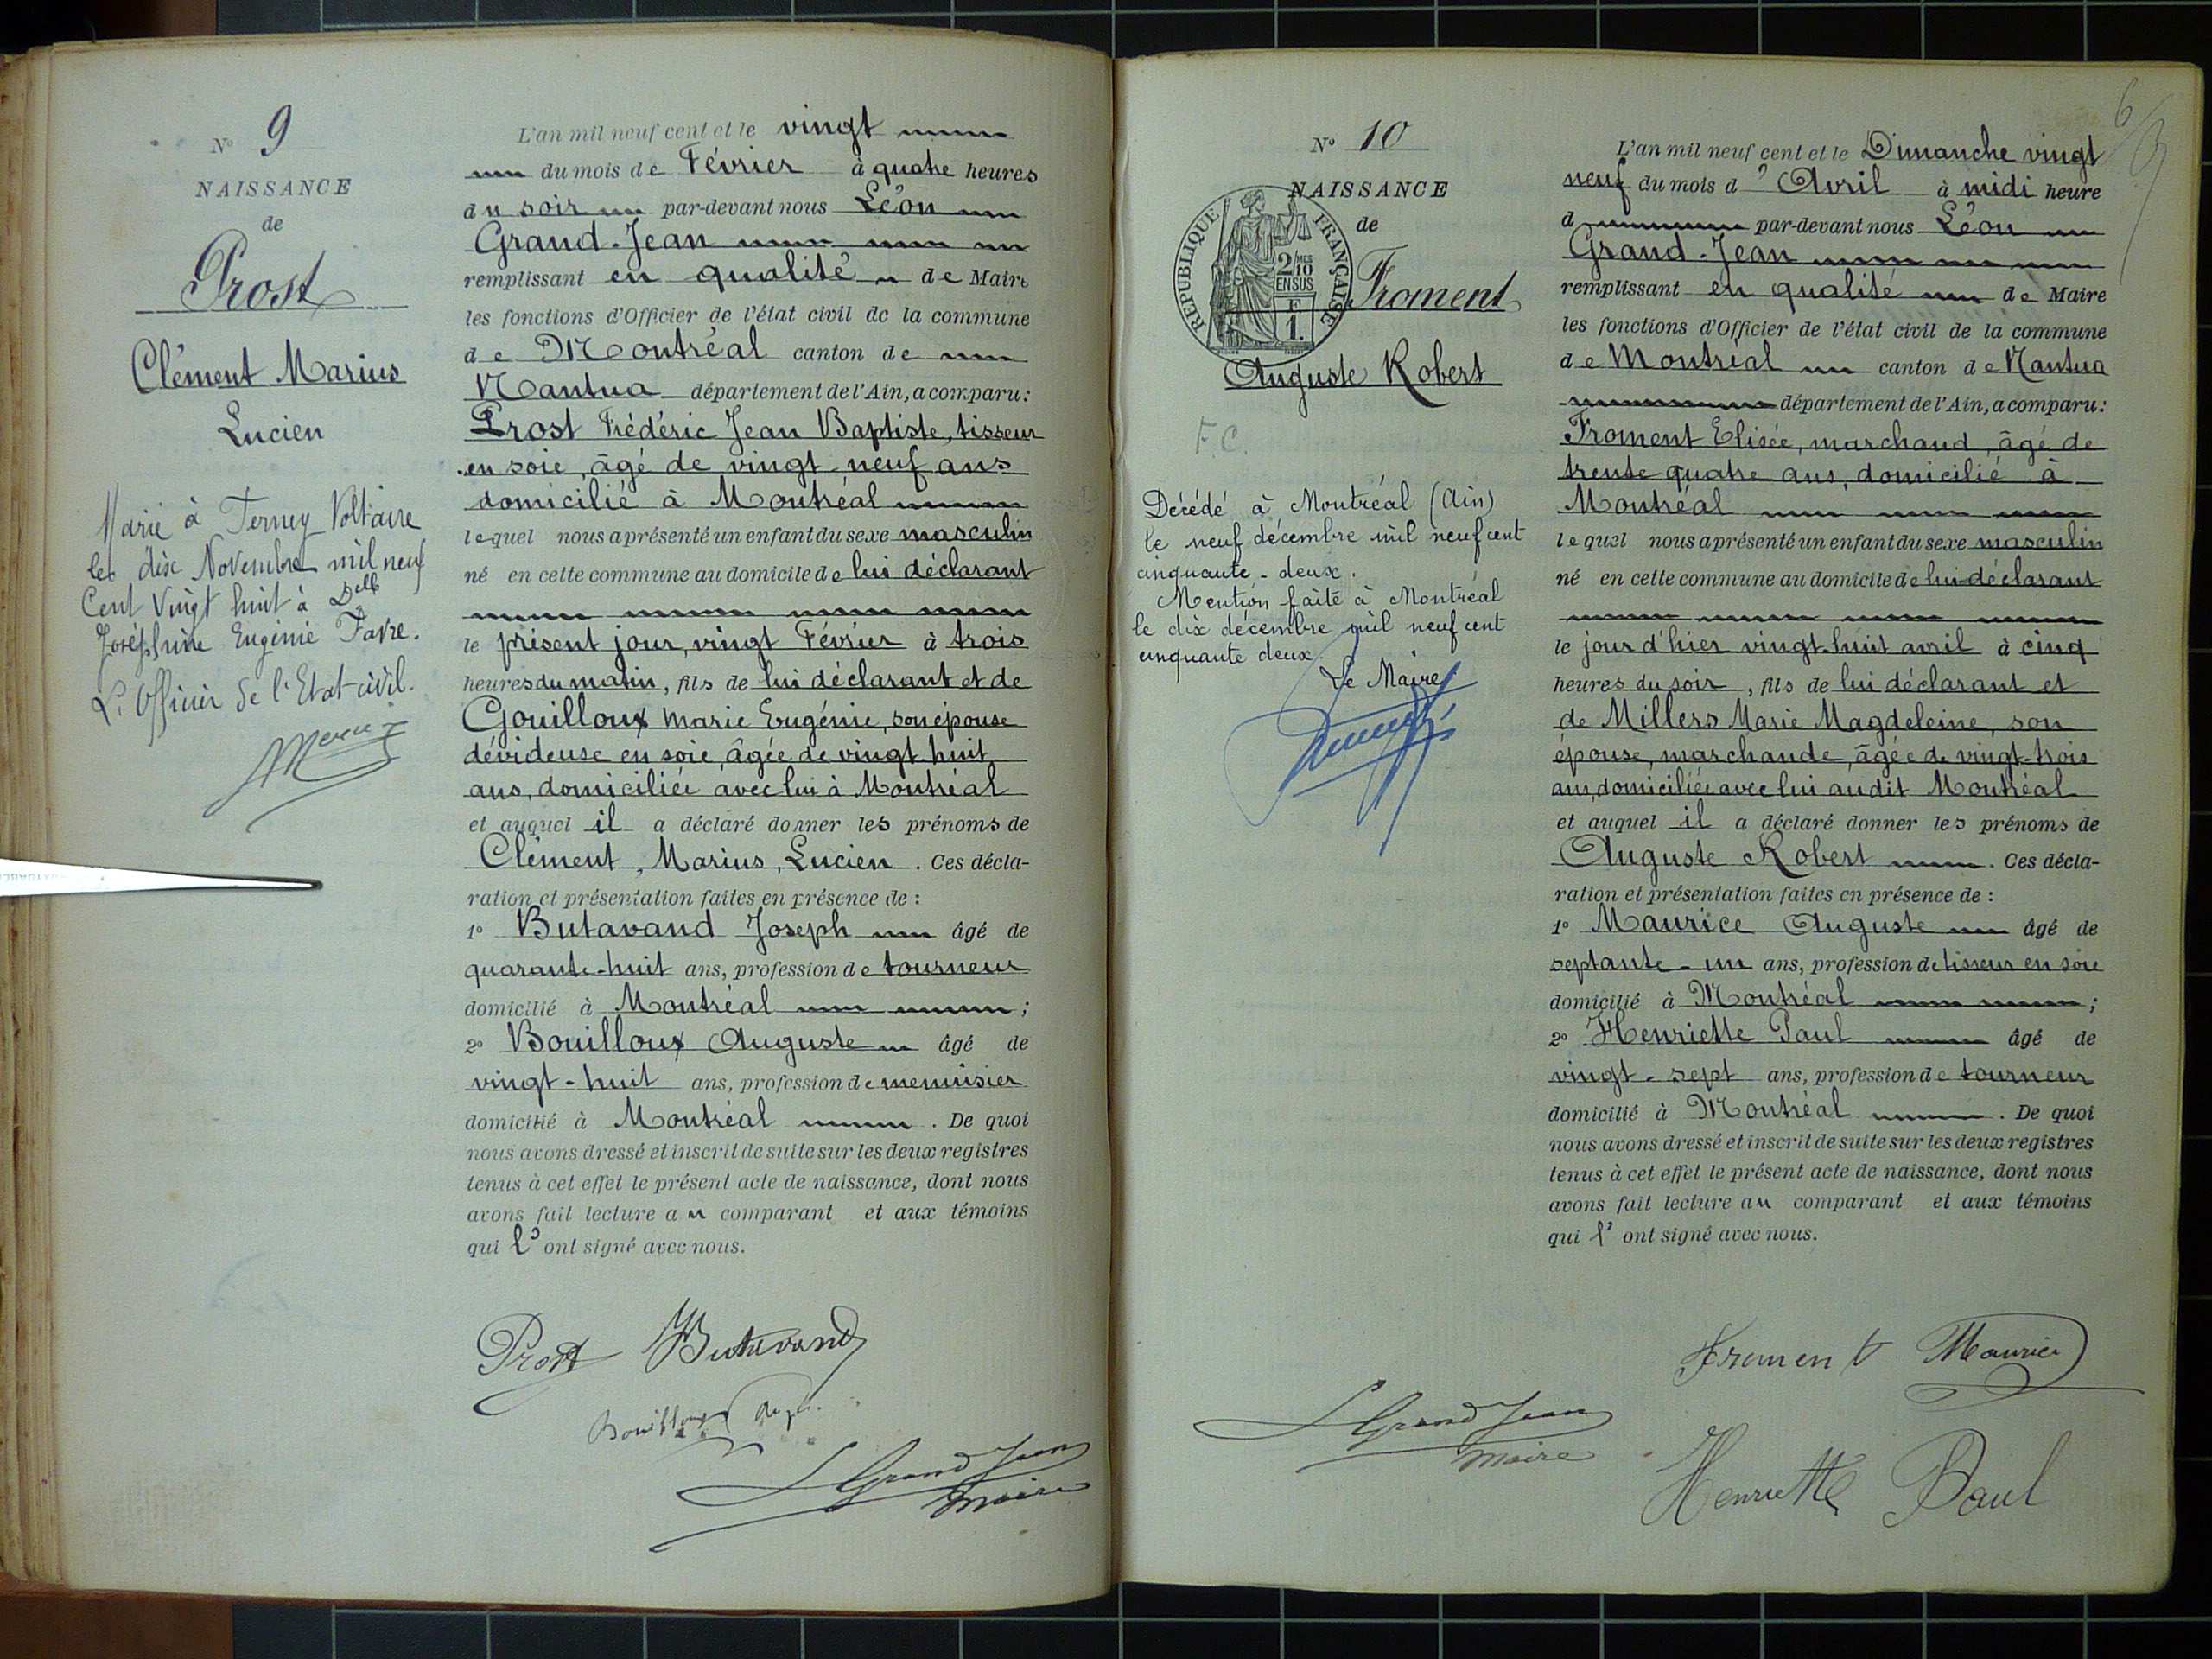 N° 9
NAISSANCE
de
Prost
Clément Marius
Lucien
Marié à Ferney Voltaire
le dix Novembre mil neuf
Cent Vingt huit à Delle
Joséphine Eugénie Favre.
L'Officier de l'Etat-civil.
L'an mil neuf cent et le vingt
du mois de Février à quatre heures
du soir par-devant nous Léon
Grand-Jean
remplissant en qualité de Maire
les fonctions d'Officier de l'état civil de la commune
de Montréal canton de
Nantua département de l'Ain, a comparu:
Prost Frédéric Jean Baptiste, tisseur
en soie, âgé de vingt-neuf ans
domicilié à Montréal
lequel nous a présenté un enfant du sexe masculin
né en cette commune au domicile de lui déclarant
le présent jour, vingt Février à trois
heures du matin, fils de lui déclarant et de
Gouilloux Marie Eugénie, son épouse
dévideuse en soie, âgée de vingt huit
ans, domiciliée avec lui à Montréal
et auquel il a déclaré donner les prénoms de
Clément, Marius, Lucien. Ces décla-
ration et présentation faites en présence de :
1° Butavand Joseph âgé de
quarante-huit ans, profession de tourneur
domicilié à Montréal ;
2° Bouilloux Auguste âgé de
vingt-huit ans, profession de menuisier
domicilié à Montréal . De quoi
nous avons dressé et inscrit de suite sur les deux registres
tenus à cet effet le présent acte de naissance, dont nous
avons fait lecture au comparant et aux témoins
qui l's ont signé avec nous.
Prost Butavand
Bouilloux Aug.
L Grand Jean
Maire
6
N° 10
NAISSANCE
de
REPUBLIQUE FRANÇAISE
2/10
EN SUS
F
1.
Froment
Auguste Robert
F.C.
Décédé à Montréal (Ain)
le neuf décembre mil neuf cent
cinquante-deux.
Mention faite à Montréal
le dix décembre mil neuf cent
cinquante deux
Le Maire
L'an mil neuf cent et le Dimanche vingt
neuf du mois d' Avril à midi heure
d par-devant nous Léon
Grand-Jean
remplissant en qualité de Maire
les fonctions d'Officier de l'état civil de la commune
de Montréal canton de Nantua
département de l'Ain, a comparu:
Froment Elisée, marchand, âgé de
trente quatre ans, domicilié à
Montréal
lequel nous a présenté un enfant du sexe masculin
né en cette commune au domicile de lui déclarant
le jour d'hier vingt-huit avril à cinq
heures du soir, fils de lui déclarant et
de Millers Marie Magdeleine, son
épouse, marchande, âgée de vingt-trois
ans, domiciliée avec lui audit Montréal
et auquel il a déclaré donner les prénoms de
Auguste Robert . Ces décla-
ration et présentation faites en présence de :
1° Maurice Auguste âgé de
septante-un ans, profession de tisseur en soie
domicilié à Montréal ;
2° Henriette Paul âgé de
vingt-sept ans, profession de tourneur
domicilié à Montréal . De quoi
nous avons dressé et inscrit de suite sur les deux registres
tenus à cet effet le présent acte de naissance, dont nous
avons fait lecture au comparant et aux témoins
qui l's ont signé avec nous.
Froment Maurice
L Grand Jean
Maire
Henriette Paul